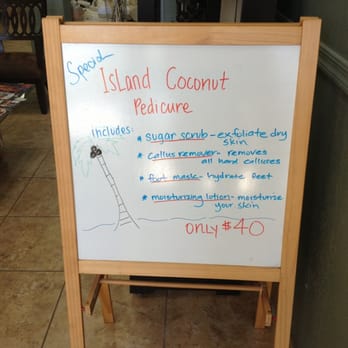 Special
Island Coconut
Pedicure
Includes:
* sugar scrub - exfoliate dry
skin
* callus remover - removes
all hard calluses
* foot mask - hydrate feet
* moisturizing lotion - moisturize
your skin
only $40